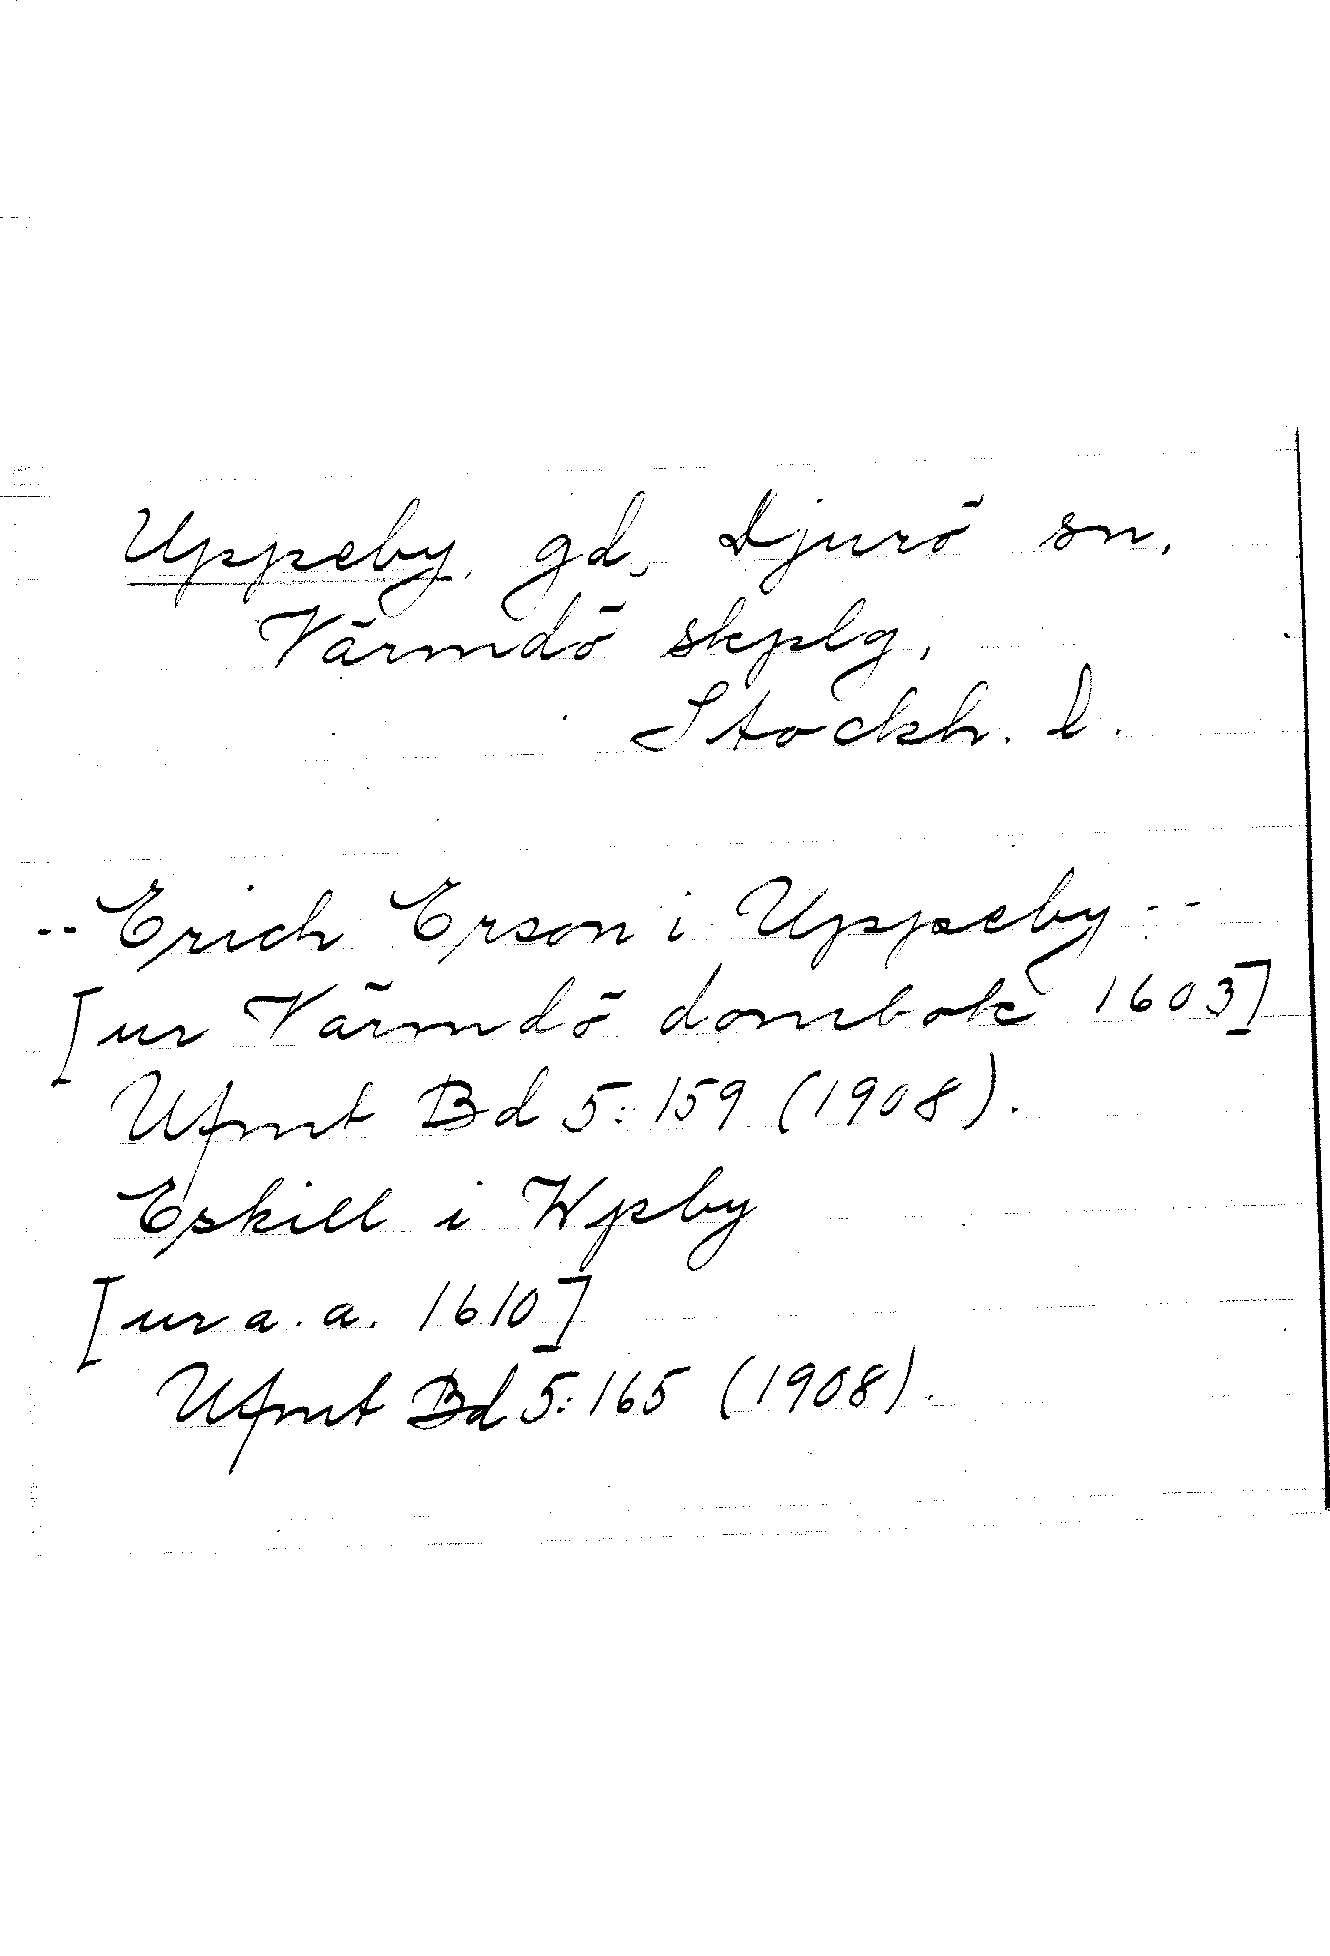 Uppeby, gd, Djurö sn,
Värmdö skplg,
Stockh. l.
-- Erich Erson i Uppeby --
[ur Värmdö dombok 1603]
Ufmt Bd 5: 159 (1908).
Eskill i Wpby
[ur a. a. 1610]
Ufmt Bd 5: 165 (1908).